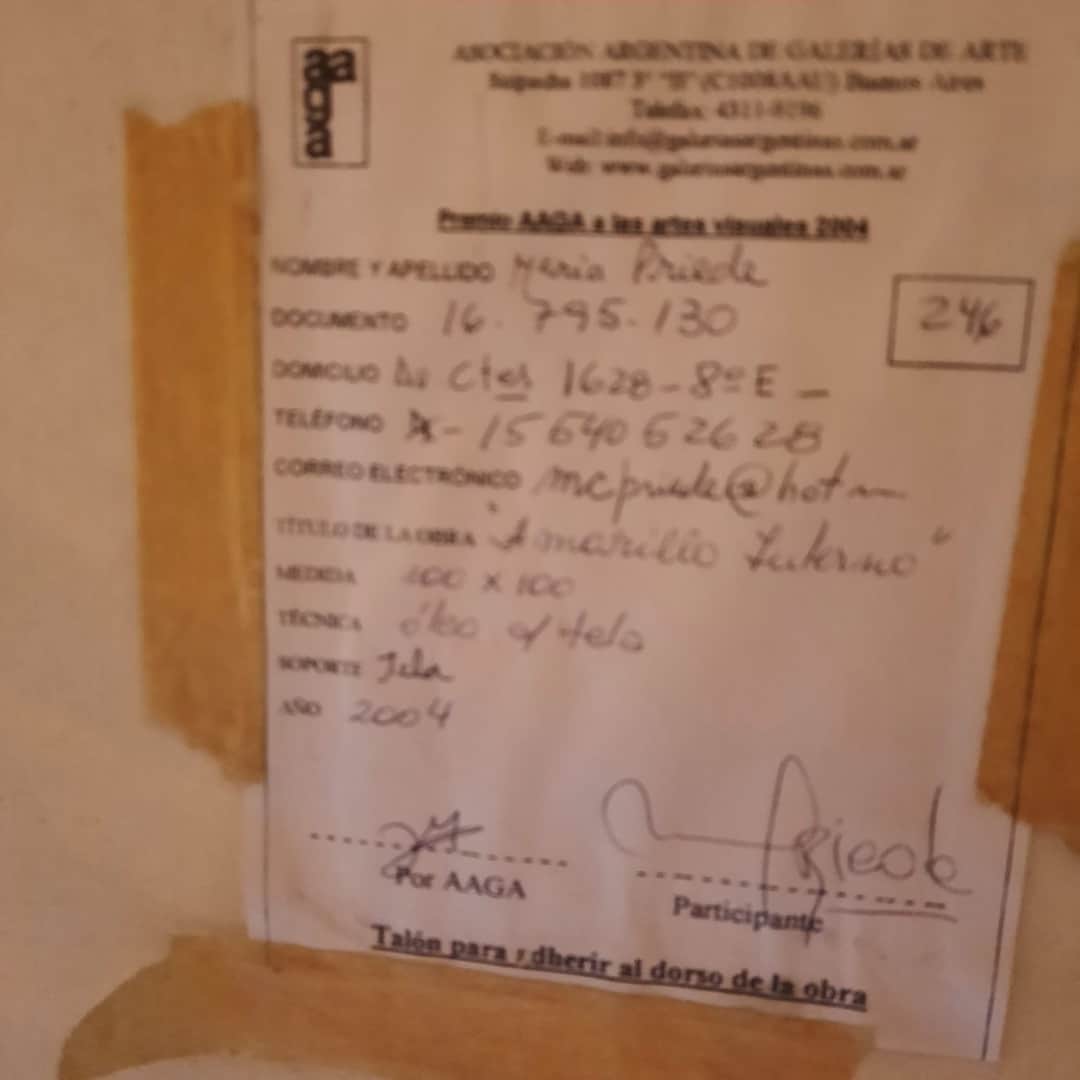 aaga
ASOCIACIÓN ARGENTINA DE GALERÍAS DE ARTE
Suipacha 1087 3° "B" (C1008AAU) Buenos Aires
Telefax: 4311-9296
Web: www.galeriasargentinas.com.ar
Premio AAGA a las artes visuales 2004
NOMBRE Y APELLIDO Maria Priede
DOCUMENTO 16.795.130
246
DOMICILIO Av Ctes 1628-8º E -
TELÉFONO - 15 640 62628
CORREO ELECTRÓNICO mcpriede@hot
TÍTULO DE LA OBRA "Amarillo Interno"
MEDIDA 100 x 100
TÉCNICA óleo s/ tela
SOPORTE Tela
AÑO 2004
Priede
Por AAGA
Participante
Talón para adherir al dorso de la obra